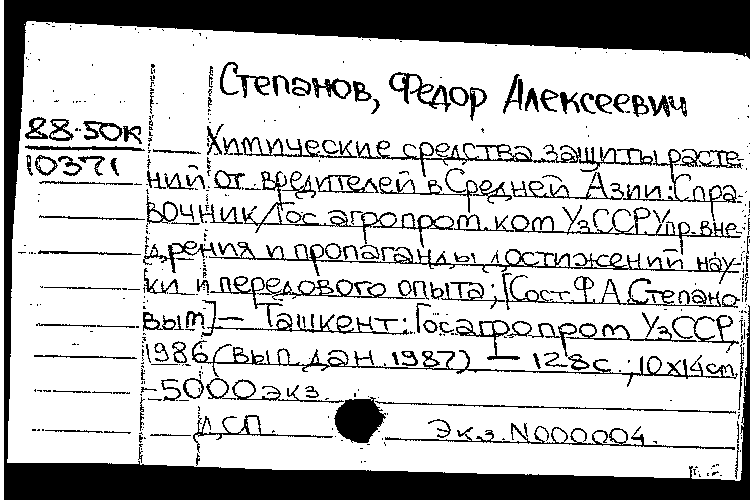 Степанов, Федор Алексеевич
88-50к
10371
Химические средства защиты расте-
ний от вредителей в Средней Азии: Спра-
вочник/Гос. агропром. ком УзССР, Упр. вне-
дрения и пропаганды достижений нау-
ки и передового опыта; [Сост. Ф.А. Степано-
вым] — Ташкент: Госагропром УзССР,
1986 (вып. дан. 1987) — 128 с.; 10х14 см
-5000 экз.
ДСП. Экз. N000004.